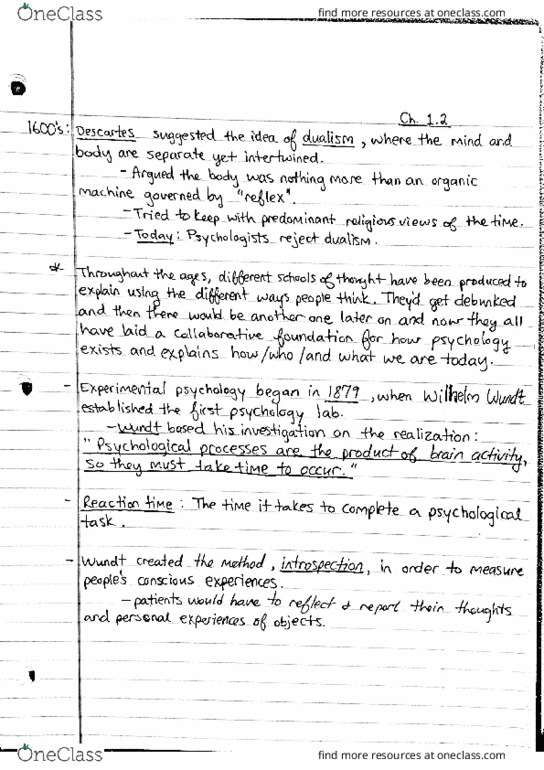 OneClass
find more resources at oneclass.com
Ch. 1.2
1600's: Descartes suggested the idea of dualism, where the mind and
body are separate yet intertwined.
- Argued the body was nothing more than an organic
machine governed by "reflex".
- Tried to keep with predominant religious views of the time.
- Today: Psychologists reject dualism.
* Throughout the ages, different schools of thought have been produced to
explain using the different ways people think. They'd get debunked
and then there would be another one later on and now they all
have laid a collaborative foundation for how psychology
exists and explains how/who/and what we are today.
- Experimental psychology began in 1879, when Wilhelm Wundt
established the first psychology lab.
- Wundt based his investigation on the realization:
"Psychological processes are the product of brain activity,
so they must take time to occur."
- Reaction time: The time it takes to complete a psychological
task.
- Wundt created the method, introspection, in order to measure
people's conscious experiences.
- patients would have to reflect & report their thoughts
and personal experiences of objects.
OneClass
find more resources at oneclass.com